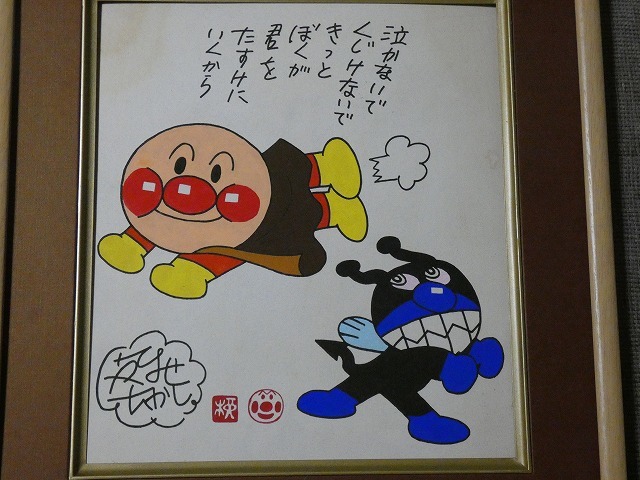 泣かないで
くじけないで
きっと
ぼくが
君を
たすけに
いくから
やなせ
たかし